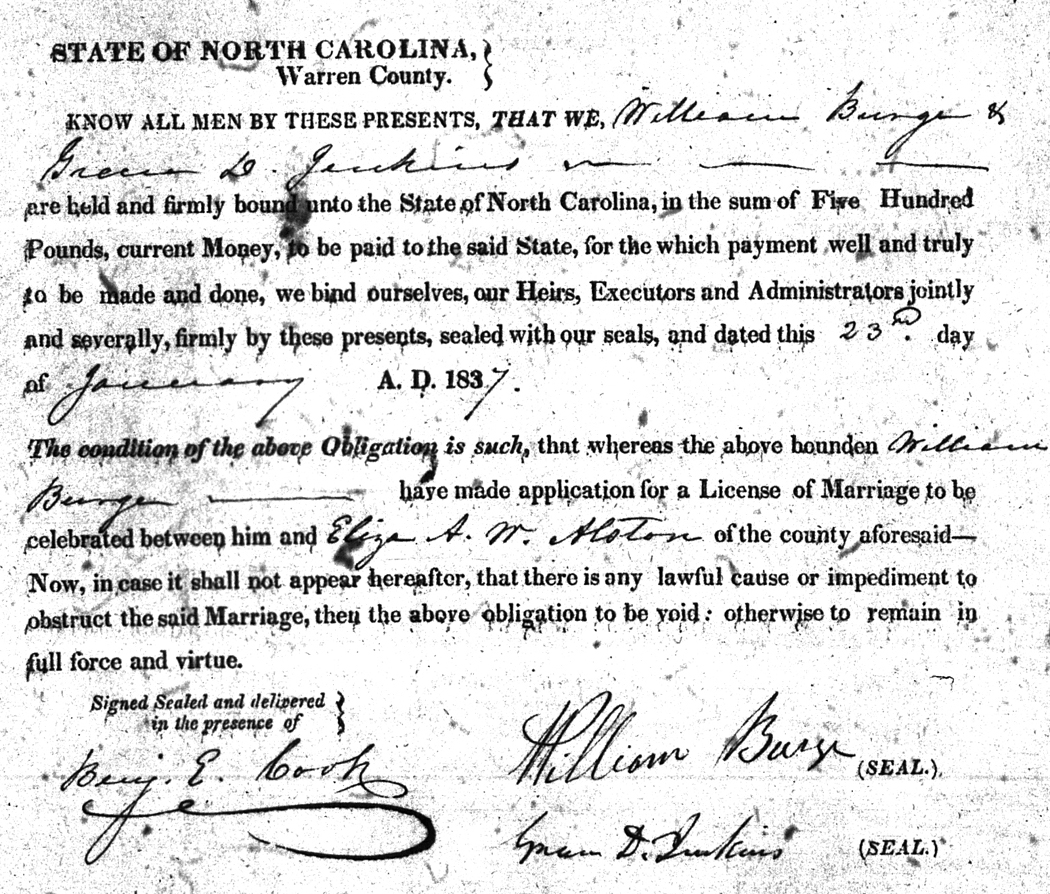 STATE OF NORTH CAROLINA,
Warren County.
KNOW ALL MEN BY THESE PRESENTS, THAT WE, William Burge &
Green D. Jenkins
are held and firmly bound unto the State of North Carolina, in the sum of Five Hundred
Pounds, current Money, to be paid to the said State, for the which payment well and truly
to be made and done, we bind ourselves, our Heirs, Executors and Administrators jointly
and severally, firmly by these presents, sealed with our seals, and dated this 23rd. day
of January A. D. 1837.
The condition of the above Obligation is such, that whereas the above bounden William
Burge have made application for a License of Marriage to be
celebrated between him and Eliza A. W. Alston of the county aforesaid—
Now, in case it shall not appear hereafter, that there is any lawful cause or impediment to
obstruct the said Marriage, then the above obligation to be void: otherwise to remain in
full force and virtue.
Signed Sealed and delivered
in the presence of
Benj. E. Cook
William Burge (SEAL.)
Green D. Jenkins (SEAL.)